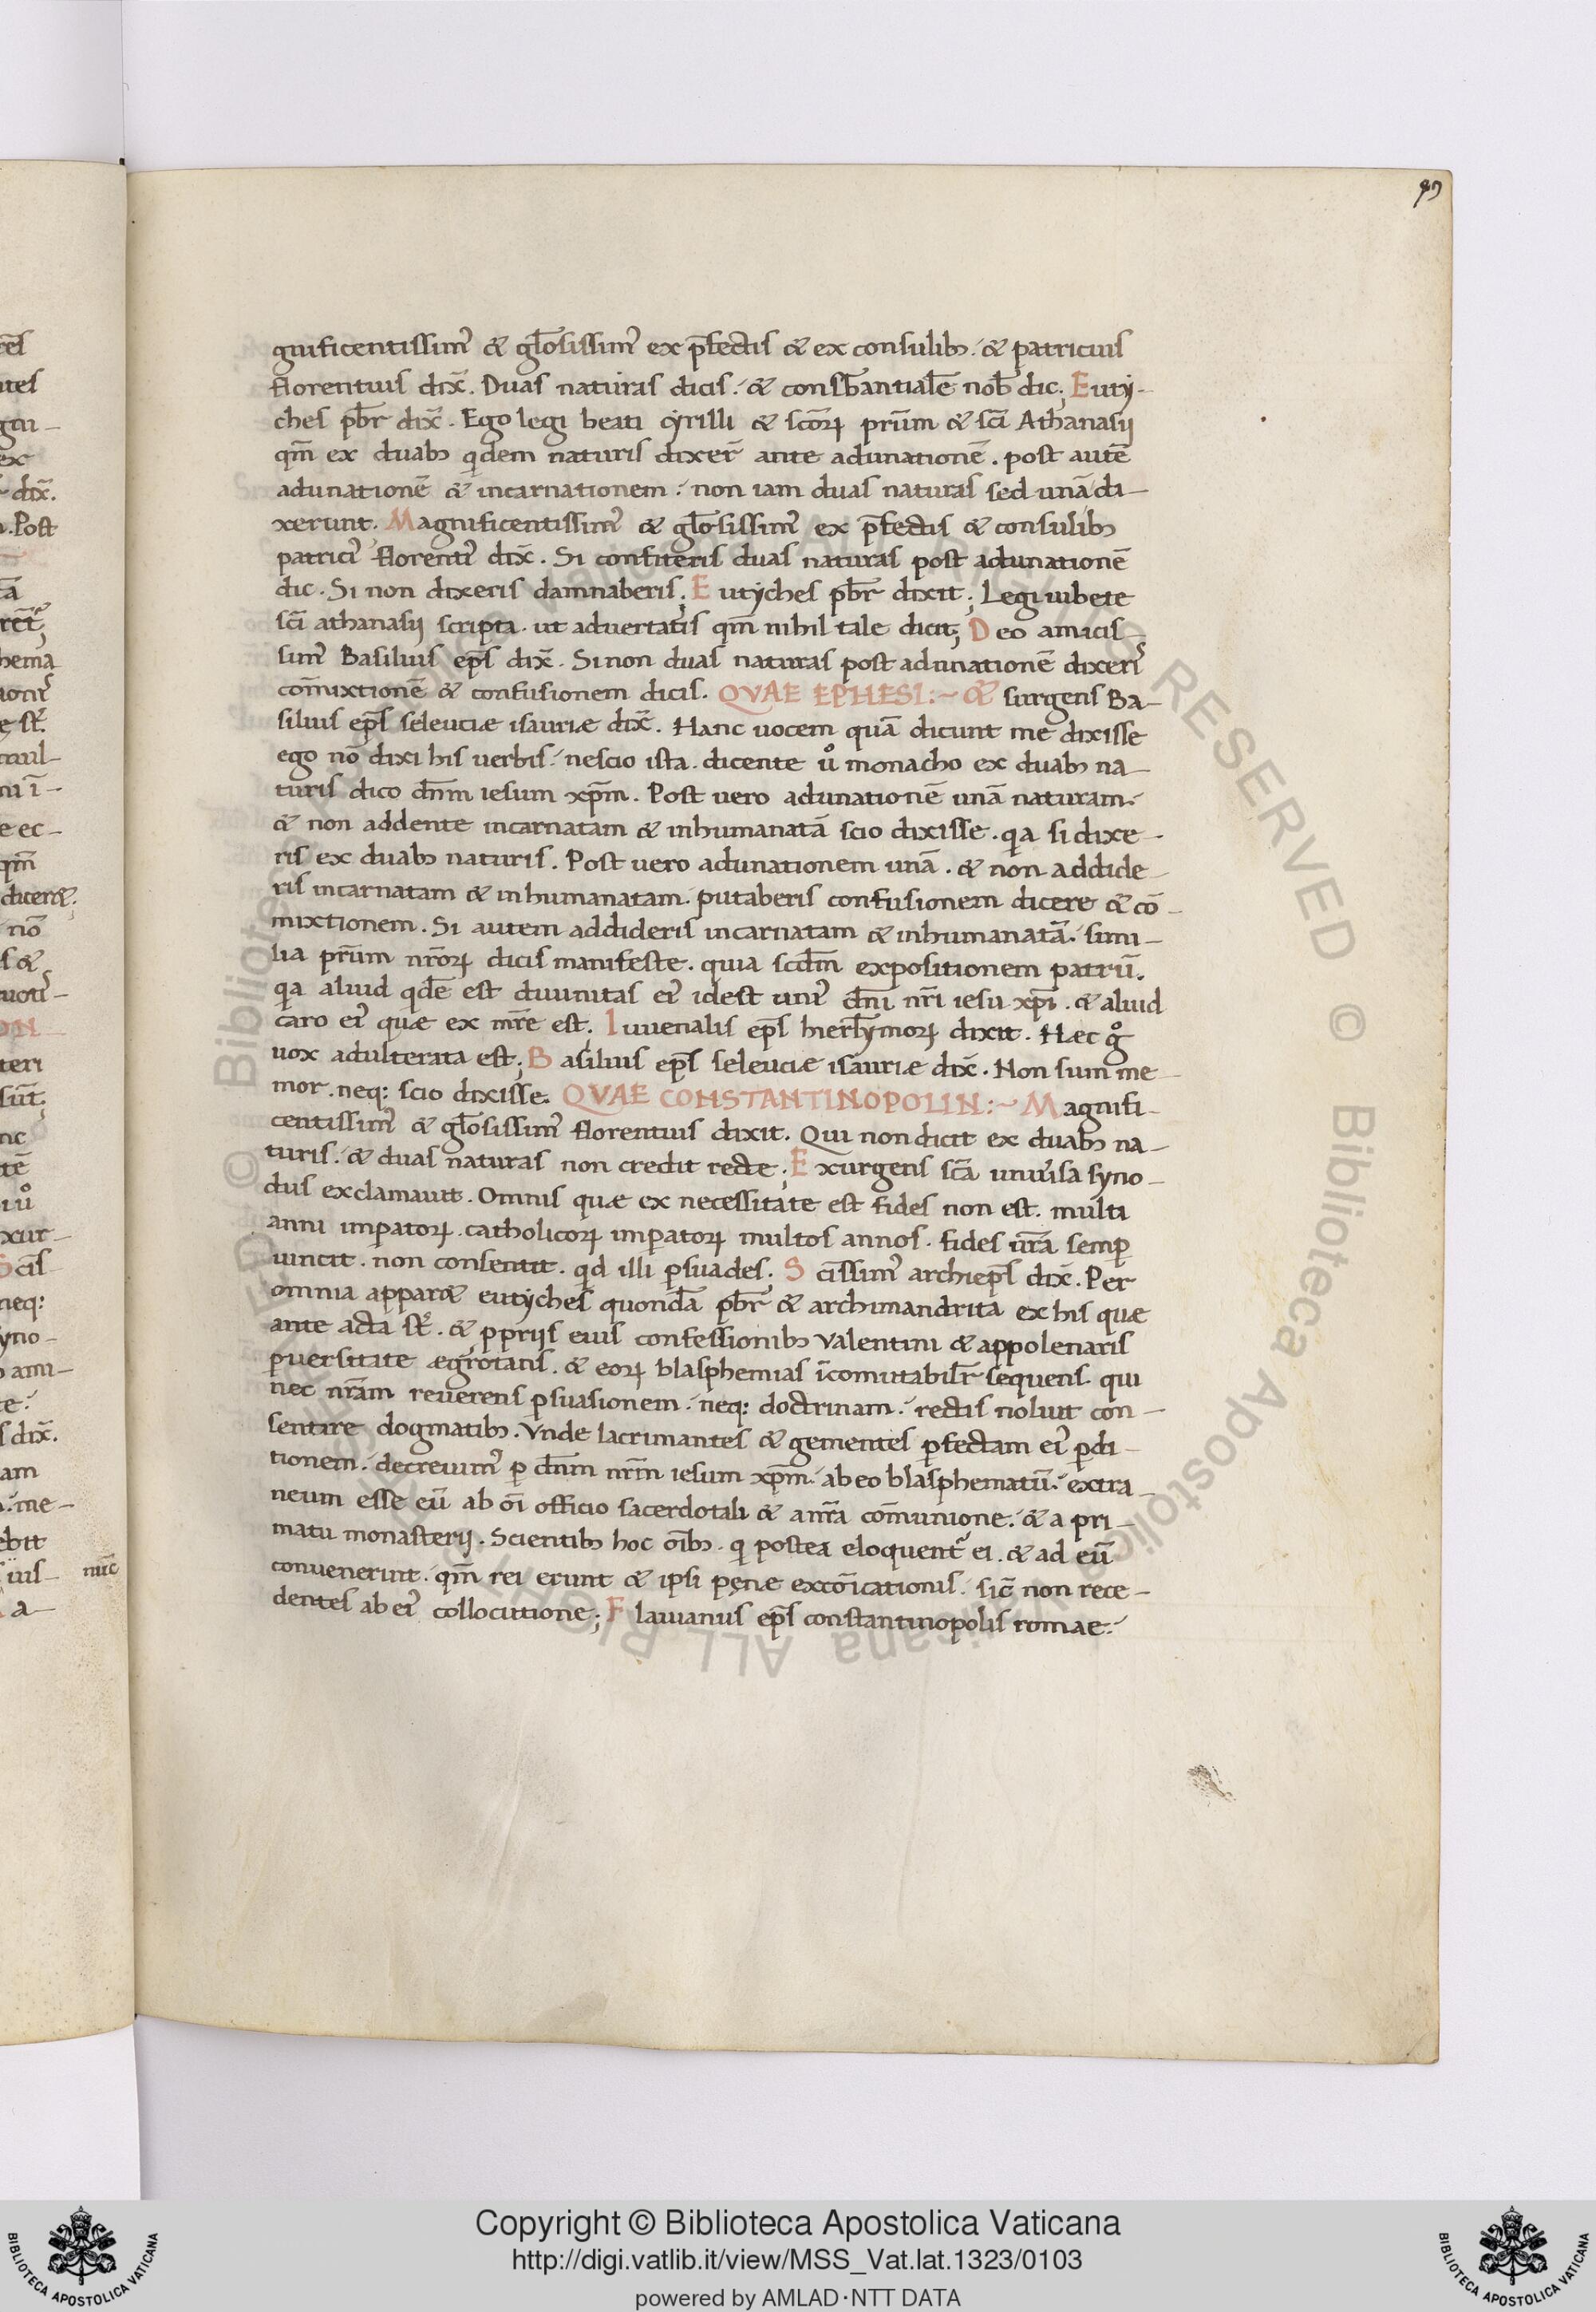 97
gnificentissim᾽ & gl̅osissim᾽ ex p̅fectis & ex consulib; & patricius
florentius dix̅. Duas naturas dicis. & consb̅antiale̅ nob̅ dic; Euty-
ches pb̅r dix̅. Ego legi beati cyrilli & sc̅oꝝ pr̅um & sc̅i Athanasij
qm̅ ex duab; qdem naturis dixer̅ ante adunatione̅. post aute̅
adunatione̅ & incarnationem. non iam duas naturas sed una̅ di-
xerunt. Magnificentissim᾽ & gl̅osissim᾽ ex p̅fectis & consulib;
patrici᾽ florenti᾽ dix̅. Si confiteris duas naturas post adunatione̅
dic. Si non dixeris damnaberis; Eutyches pb̅r dixit; Legi iubete
sc̅i athanasij scripta. ut advertatis qm̅ nihil tale dicit; Deo amicis-
sim᾽ Basilius ep̅s dix̅. Si non duas naturas post adunatione̅ dixeri᾽
com̅ixtione̅ & confusionem dicis. QVAE EPHESI:~ & surgens Ba-
silius ep̅s seleuciæ isauriæ dix̅. Hanc uocem qua̅ dicunt me dixisse
ego no̅ dixi his uerbis. nescio ista. dicente uͦ monacho ex duab; na-
turis dico dn̅m iesum xp̅m. Post uero adunatione̅ una̅ naturam.
& non addente incarnatam & inhumanata̅ scio dixisse. qa si dixe-
ris ex duab; naturis. Post uero adunationem una̅. & non addide-
ris incarnatam & inhumanatam. putaberis confusionem dicere & co̅-
mixtionem. Si autem addideris incarnatam & inhumanata̅. simi-
lia pr̅um nr̅oꝝ dicis manifeste. quia scd̅m expositionem patru̅.
qa aliud qde̅ est diuinitas ei᾽ idest uni᾽ dn̅i nr̅i iesu xp̅i. & aliud
caro ei᾽ quæ ex mr̅e est. Iuuenalis ep̅s hierl̅ymoꝝ dixit. Hæc gͦ
uox adulterata est; Basilius ep̅s seleuciæ isauriæ dix̅. Non sum me-
mor. neq: scio dixisse. QVAE CONSTANTINOPOLIN:~ Magnifi-
centissim᾽ & gl̅osissim᾽ florentius dixit. Qui non dicit ex duab; na-
turis. & duas naturas non credit recte; Exurgens sc̅a uniu᾽sa syno-
dus exclamauit. Omnis quæ ex necessitate est fides non est. multi
anni impatoꝝ. catholicoꝝ impatoꝝ multos annos. fides ur̅a semꝑ
uincit. non consentit. qd illi ꝑsuades; Scissim᾽ archiep̅s dix̅. Per
omnia appar& eutyches quonda̅ pb̅r & archimandrita ex his quæ
ante acta st᾽. & ꝓprijs eius confessionib; Valentini & appolenaris
ꝑuersitate ægrotans. & eoꝝ blasphemias i̅comutabilr̅ sequens. qui
nec nr̅am reuerens ꝑsuasionem. neq: doctrinam. rectis noluit con-
sentire dogmatib;. Vnde lacrimantes & gementes ꝑfectam ei᾽ ꝑdi-
tionem. decreuim᾽ ꝑ dn̅m nr̅m iesum xp̅m. ab eo blasphematu̅. extra-
neum esse eu̅ ab oi̅ officio sacerdotali & a nr̅a com̅unione. & a pri-
matu monasterij. Scientib; hoc oi̅b;. qi postea eloquent᾽ ei. & ad eu̅
conuenerint. qm̅ rei erunt & ipsi pęnæ exco̅icationis. sic̅ non rece-
dentes ab ei᾽ collocutione; Flauianus ep̅s constantinopolis romae.
Copyright © Biblioteca Apostolica Vaticana
http://digi.vatlib.it/view/MSS_Vat.lat.1323/0103
powered by AMLAD·NTT DATA